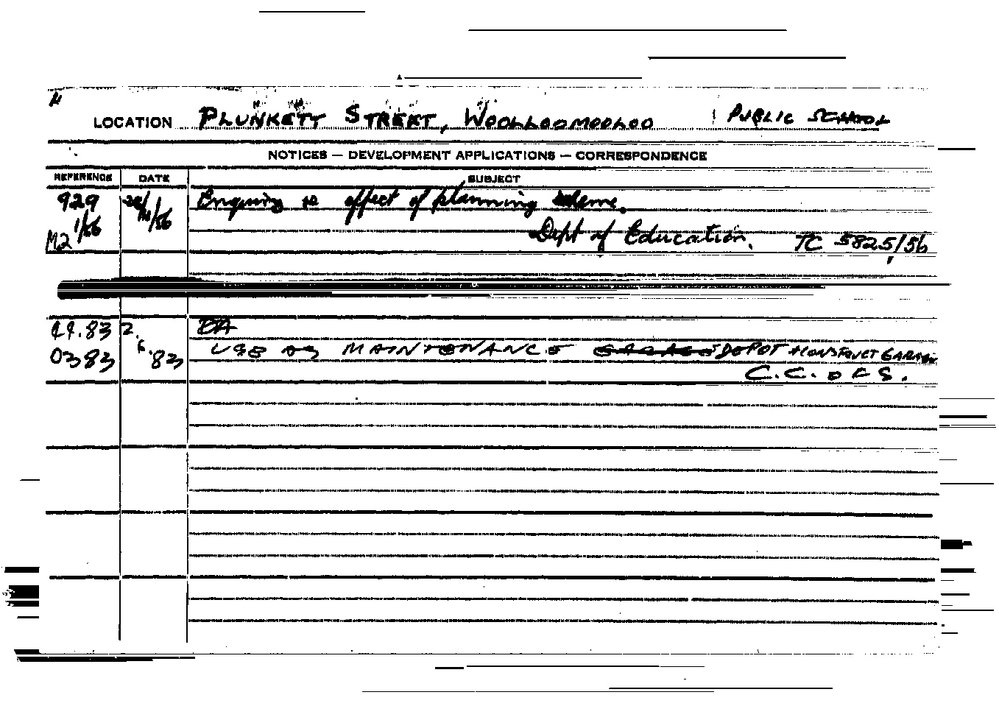 LOCATION PLUNKETT STREET, WOOLLOOMOOLOO PUBLIC SCHOOL
NOTICES — DEVELOPMENT APPLICATIONS — CORRESPONDENCE
REFERENCE DATE SUBJECT
929 Enquiry re effect of planning scheme.
M2 1/56 /56 Dept of Education. TC 5825/56
44.83 2. DA
0383 6.83 USE AS MAINTENANCE GARAGE DEPOT + CONSTRUCT GARAGE
C.C. OF S.